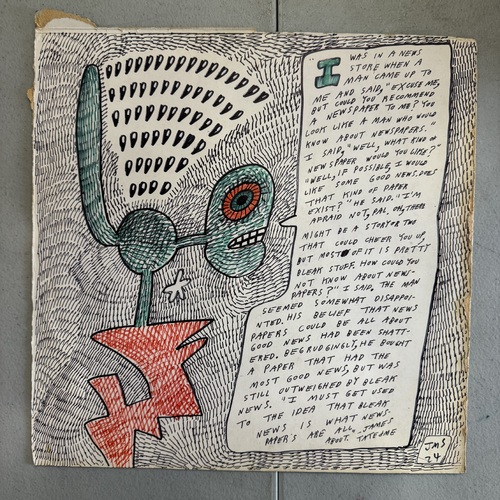 I WAS IN A NEWS
STORE WHEN A
MAN CAME UP TO
ME AND SAID, "EXCUSE ME,
BUT COULD YOU RECOMMEND
A NEWSPAPER TO ME? YOU
LOOK LIKE A MAN WHO WOULD
KNOW ABOUT NEWSPAPERS.
I SAID, "WELL, WHAT KIND OF
NEWSPAPER WOULD YOU LIKE?"
"WELL, IF POSSIBLE, I WOULD
LIKE SOME GOOD NEWS. DOES
THAT KIND OF PAPER
EXIST?" HE SAID. "I'M
AFRAID NOT, PAL. OH, THERE
MIGHT BE A STORY OR TWO
THAT COULD CHEER YOU UP,
BUT MOST OF IT IS PRETTY
BLEAK STUFF. HOW COULD YOU
NOT KNOW ABOUT NEWS-
PAPERS?" I SAID. THE MAN
SEEMED SOMEWHAT DISAPPOI-
NTED. HIS BELIEF THAT NEWS
PAPERS COULD BE ALL ABOUT
GOOD NEWS HAD BEEN SHATT-
ERED. BEGRUDGINGLY, HE BOUGHT
A PAPER THAT HAD THE
MOST GOOD NEWS, BUT WAS
STILL OUTWEIGHED BY BLEAK
NEWS. "I MUST GET USED
TO THE IDEA THAT BLEAK
NEWS IS WHAT NEWS-
PAPER'S ARE ALL JAMES
ABOUT. TATE JME
JMS
24